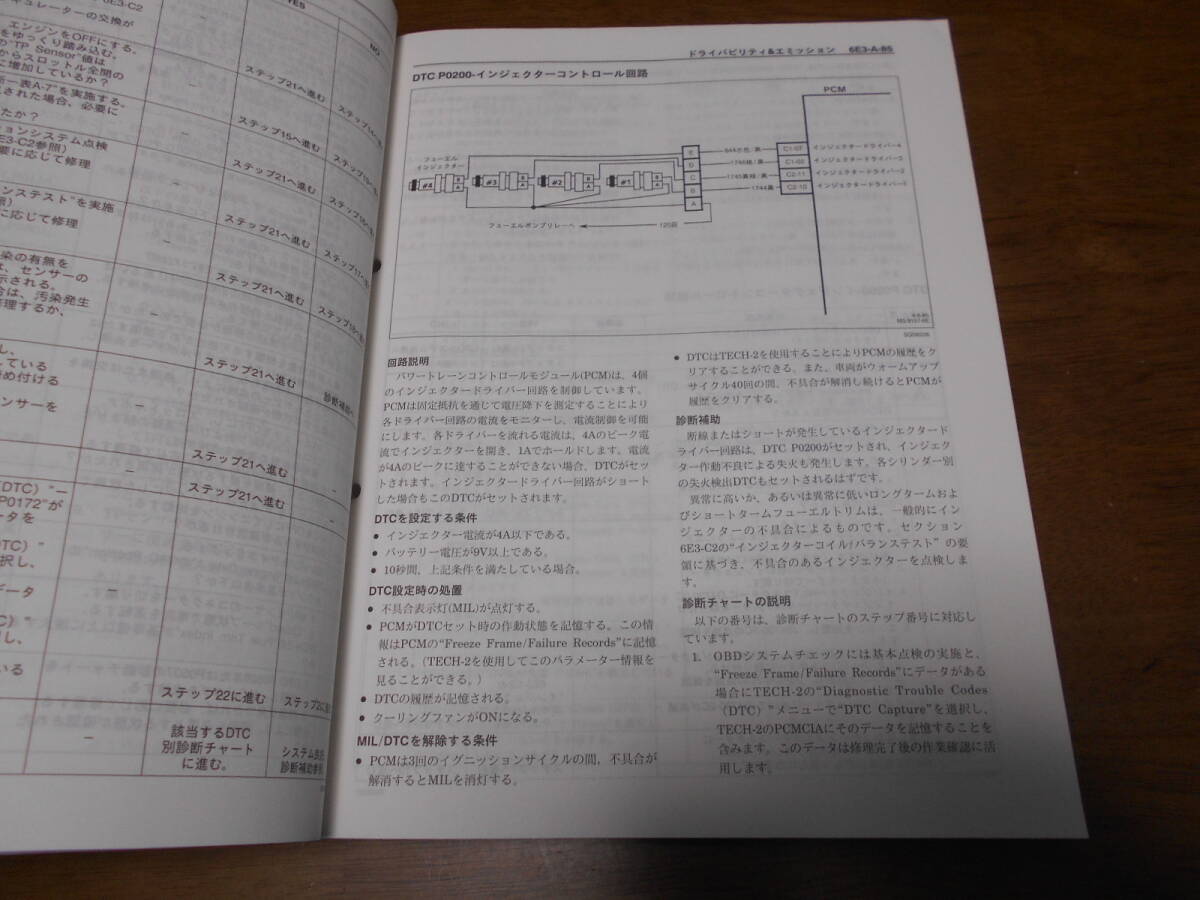 6E3-C2
YES
NO
ギュレーターの交換が
エンジンをOFFにする。
をゆっくり踏み込む。
の"TP Sensor"値は
からスロットル全開の
に増加しているか？
ステップ21へ進む
断－表A-7"を実施する。
された場合、必要に
たか？
ステップ15へ進む
ションシステム点検
E3-C2参照)
要に応じて修理
ステップ21へ進む
ンステスト"を実施
照)
に応じて修理
ステップ21へ進む
染の有無を
は、センサーの
示される。
合は、汚染発生
修理するか、
ステップ21へ進む
し、
している
締め付ける
ステップ21へ進む
診断補助へ
ンサーを
ステップ21へ進む
DTC）"－
P0172"が
ータを
ステップ21へ進む
DTC）"
択し、
データ
C）"
し、
いる
ステップ22に進む
該当するDTC
別診断チャート
に進む。
診断補助参照
ドライバビリティ&エミッション 6E3-A-85
DTC P0200-インジェクターコントロール回路
PCM
フューエル
インジェクター
#4 B A #3 B A #2 B A #1 B A
E 844水色/黒 C1-07 インジェクタードライバー4
D 1746桃/黒 C1-08 インジェクタードライバー3
C 1745黄緑/黒 C2-11 インジェクタードライバー2
B 1744黒 C2-10 インジェクタードライバー1
A
フューエルポンプリレーへ 120
回路説明
パワートレーンコントロールモジュール(PCM)は、4個
のインジェクタードライバー回路を制御しています。
PCMは固定抵抗を通じて電圧降下を測定することにより
各ドライバー回路の電流をモニターし、電流制御を可能
にします。各ドライバーを流れる電流は、4Aのピーク電
流でインジェクターを開き、1Aでホールドします。電流
が4Aのピークに達することができない場合、DTCがセッ
トされます。インジェクタードライバー回路がショート
した場合もこのDTCがセットされます。
DTCを設定する条件
● インジェクター電流が4A以下である。
● バッテリー電圧が9V以上である。
● 10秒間、上記条件を満たしている場合。
DTC設定時の処置
● 不具合表示灯(MIL)が点灯する。
● PCMがDTCセット時の作動状態を記憶する。この情
報はPCMの"Freeze Frame/Failure Records"に記憶
される。(TECH-2を使用してこのパラメーター情報を
見ることができる。)
● DTCの履歴が記憶される。
● クーリングファンがONになる。
MIL/DTCを解除する条件
● PCMは3回のイグニッションサイクルの間，不具合が
解消するとMILを消灯する。
● DTCはTECH-2を使用することによりPCMの履歴をク
リアすることができる。また、車両がウォームアップ
サイクル40回の間、不具合が解消し続けるとPCMが
履歴をクリアする。
診断補助
断線またはショートが発生しているインジェクタード
ライバー回路は、DTC P0200がセットされ、インジェク
ター作動不良による失火も発生します。各シリンダー別
の失火検出DTCもセットされるはずです。
異常に高いか、あるいは異常に低いロングタームおよ
びショートタームフューエルトリムは、一般的にイン
ジェクターの不具合によるものです。セクション
6E3-C2の"インジェクターコイル/バランステスト"の要
領に基づき、不具合のあるインジェクターを点検しま
す。
診断チャートの説明
以下の番号は、診断チャートのステップ番号に対応し
ています。
1. OBDシステムチェックには基本点検の実施と、
"Freeze Frame/Failure Records"にデータがある
場合にTECH-2の"Diagnostic Trouble Codes
（DTC）"メニューで"DTC Capture"を選択し、
TECH-2のPCMCIAにそのデータを記憶することを
含みます。このデータは修理完了後の作業確認に活
用します。